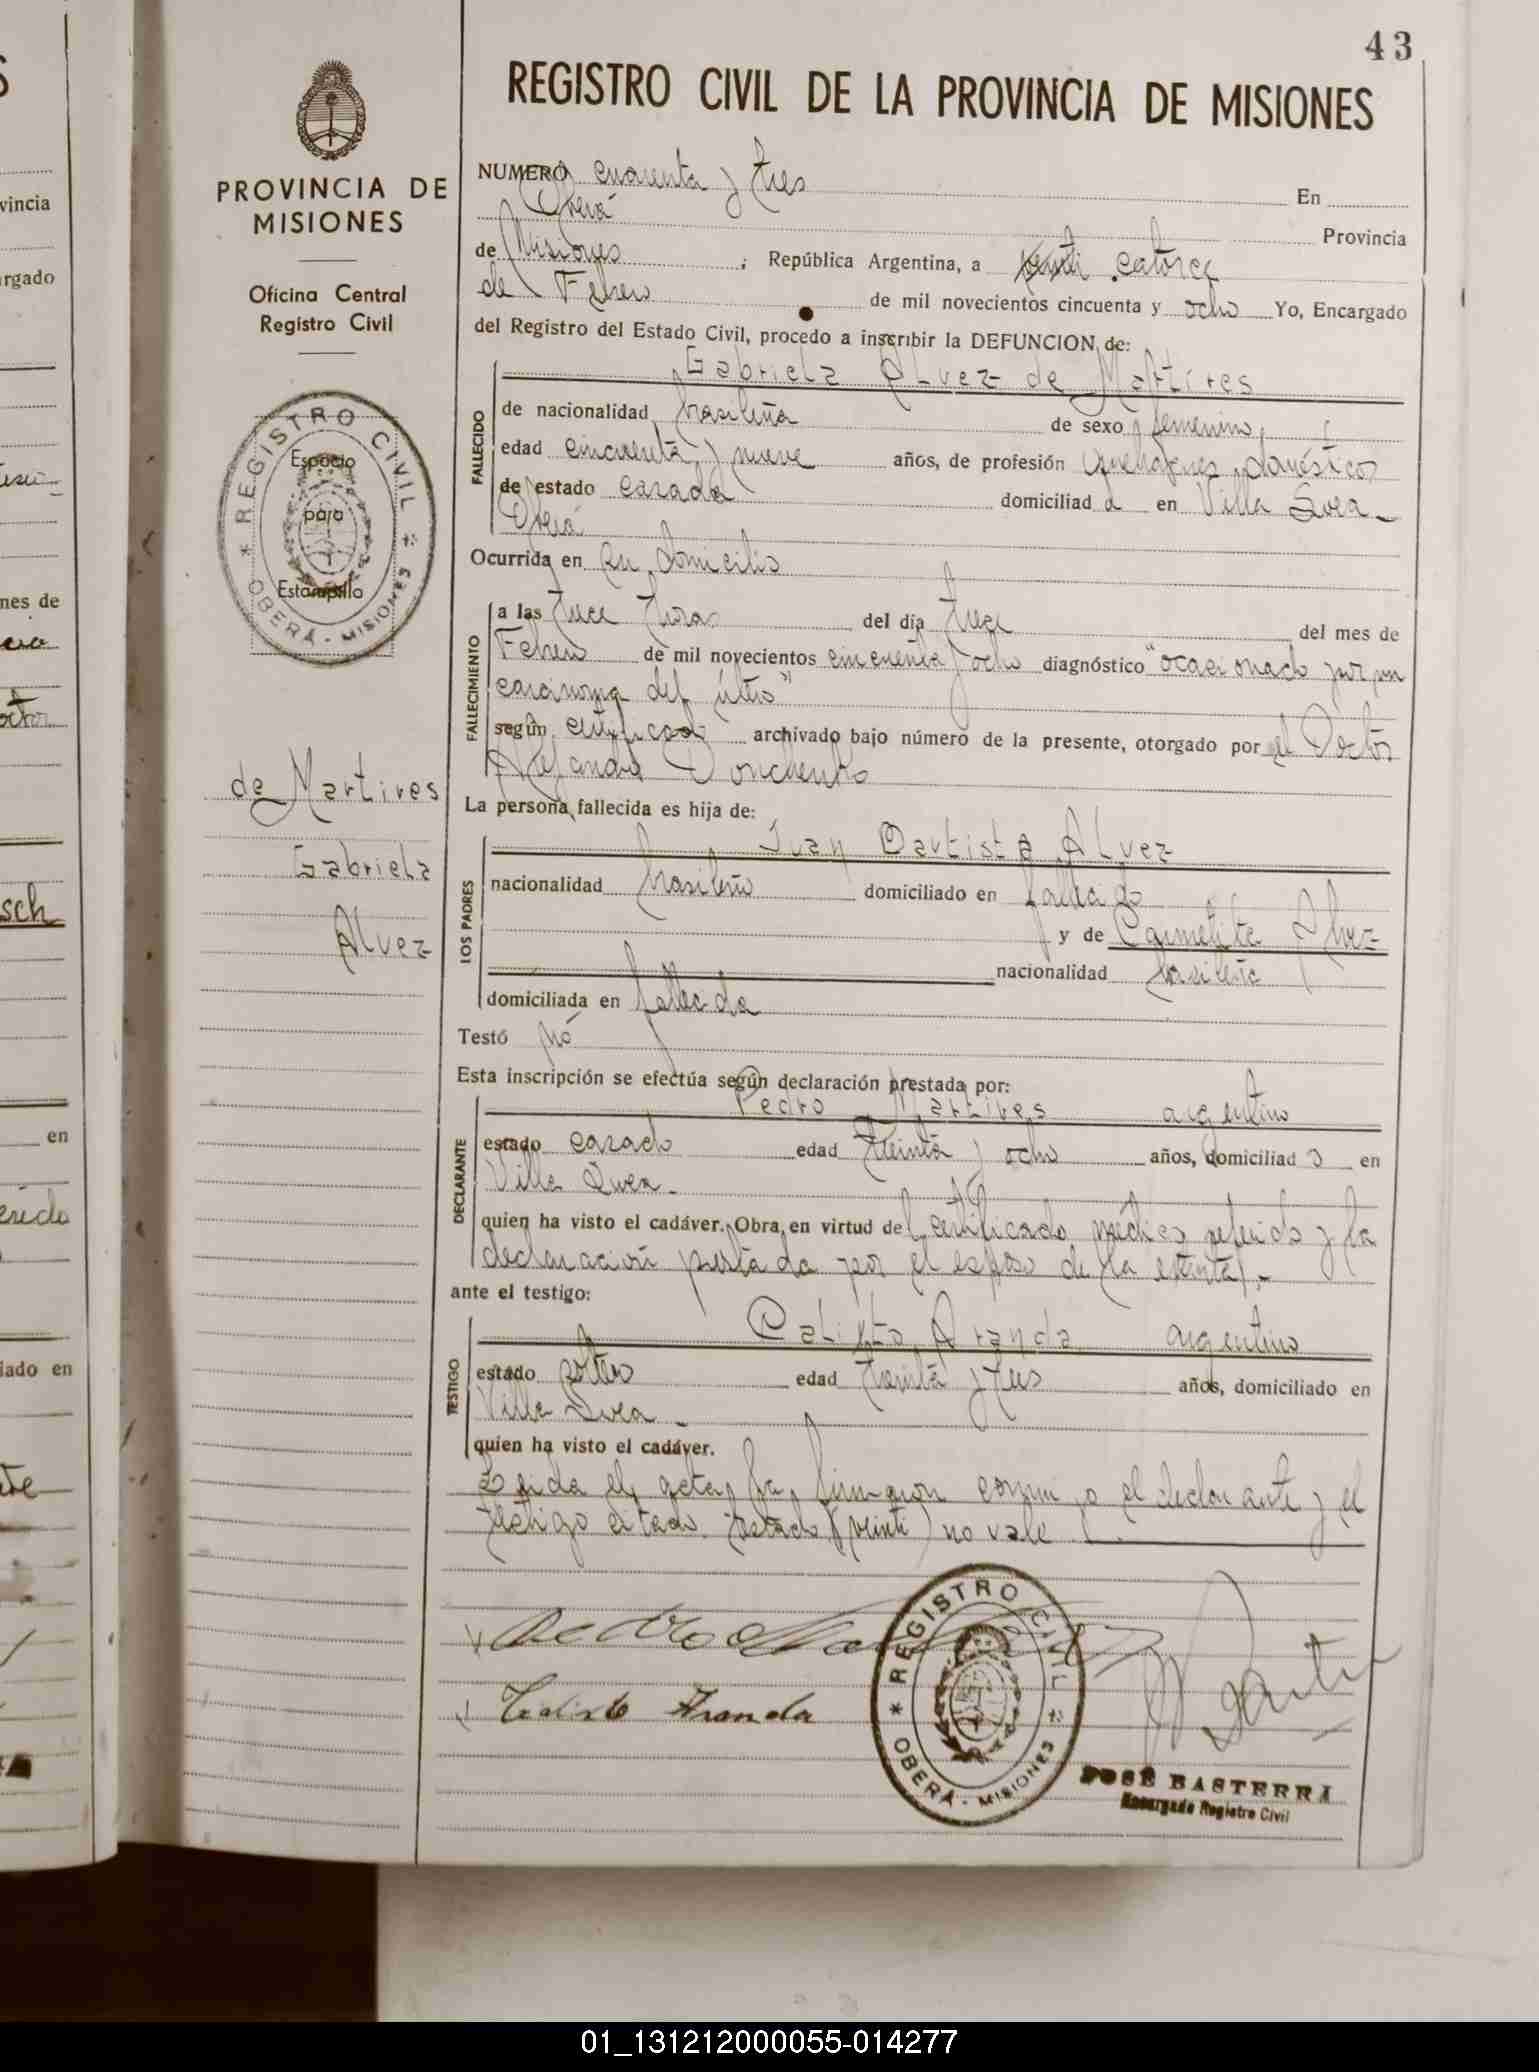 43
REGISTRO CIVIL DE LA PROVINCIA DE MISIONES
PROVINCIA DE
MISIONES
Oficina Central
Registro Civil
REGISTRO CIVIL
Espacio
para
Estampilla
OBERÁ - MISIONES
de Martires
Gabriela
Alvez
NUMERO cuarenta y tres En
Oberá Provincia
de Misiones ; República Argentina, a veinti catorce
de Febrero de mil novecientos cincuenta y ocho Yo, Encargado
del Registro del Estado Civil, procedo a inscribir la DEFUNCION de:
Gabriela Alvez de Martires
FALLECIDO
de nacionalidad brasileña de sexo femenino,
edad cincuenta y nueve años, de profesión quehaceres domésticos
de estado casada domiciliad a en Villa Svea -
Oberá
Ocurrida en su domicilio
FALLECIMIENTO
a las trece horas del día trece del mes de
Febrero de mil novecientos cincuenta y ocho diagnóstico "ocacionado por un
carcinoma del útero"
según certificado archivado bajo número de la presente, otorgado por el Doctor
Alejandro
La persona fallecida es hija de:
LOS PADRES
Juan Bautista Alvez
nacionalidad brasileño domiciliado en fallecido
y de Carmelita Alvez
nacionalidad brasileña
domiciliada en fallecida
Testó nó
Esta inscripción se efectúa según declaración prestada por:
DECLARANTE
Pedro Martires argentino
estado casado edad treinta y ocho años, domiciliad o en
Villa Svea -
quien ha visto el cadáver. Obra en virtud del certificado médico referido y la
declaración prestada por el esposo de la extinta. -
ante el testigo:
TESTIGO
Calixto Aranda argentino
estado soltero edad treinta y tres años, domiciliado en
Villa Svea -
quien ha visto el cadáver.
Leida el acta, la firmaron conmigo el declarante y el
testigo citado. Testado (veinti) no vale
Pedro
Calisto Aranda
REGISTRO CIVIL
OBERÁ - MISIONES
JOSÉ BASTERRA
Encargado Registro Civil
vincia
argado
nes de
sch
en
iado en
01_131212000055-014277